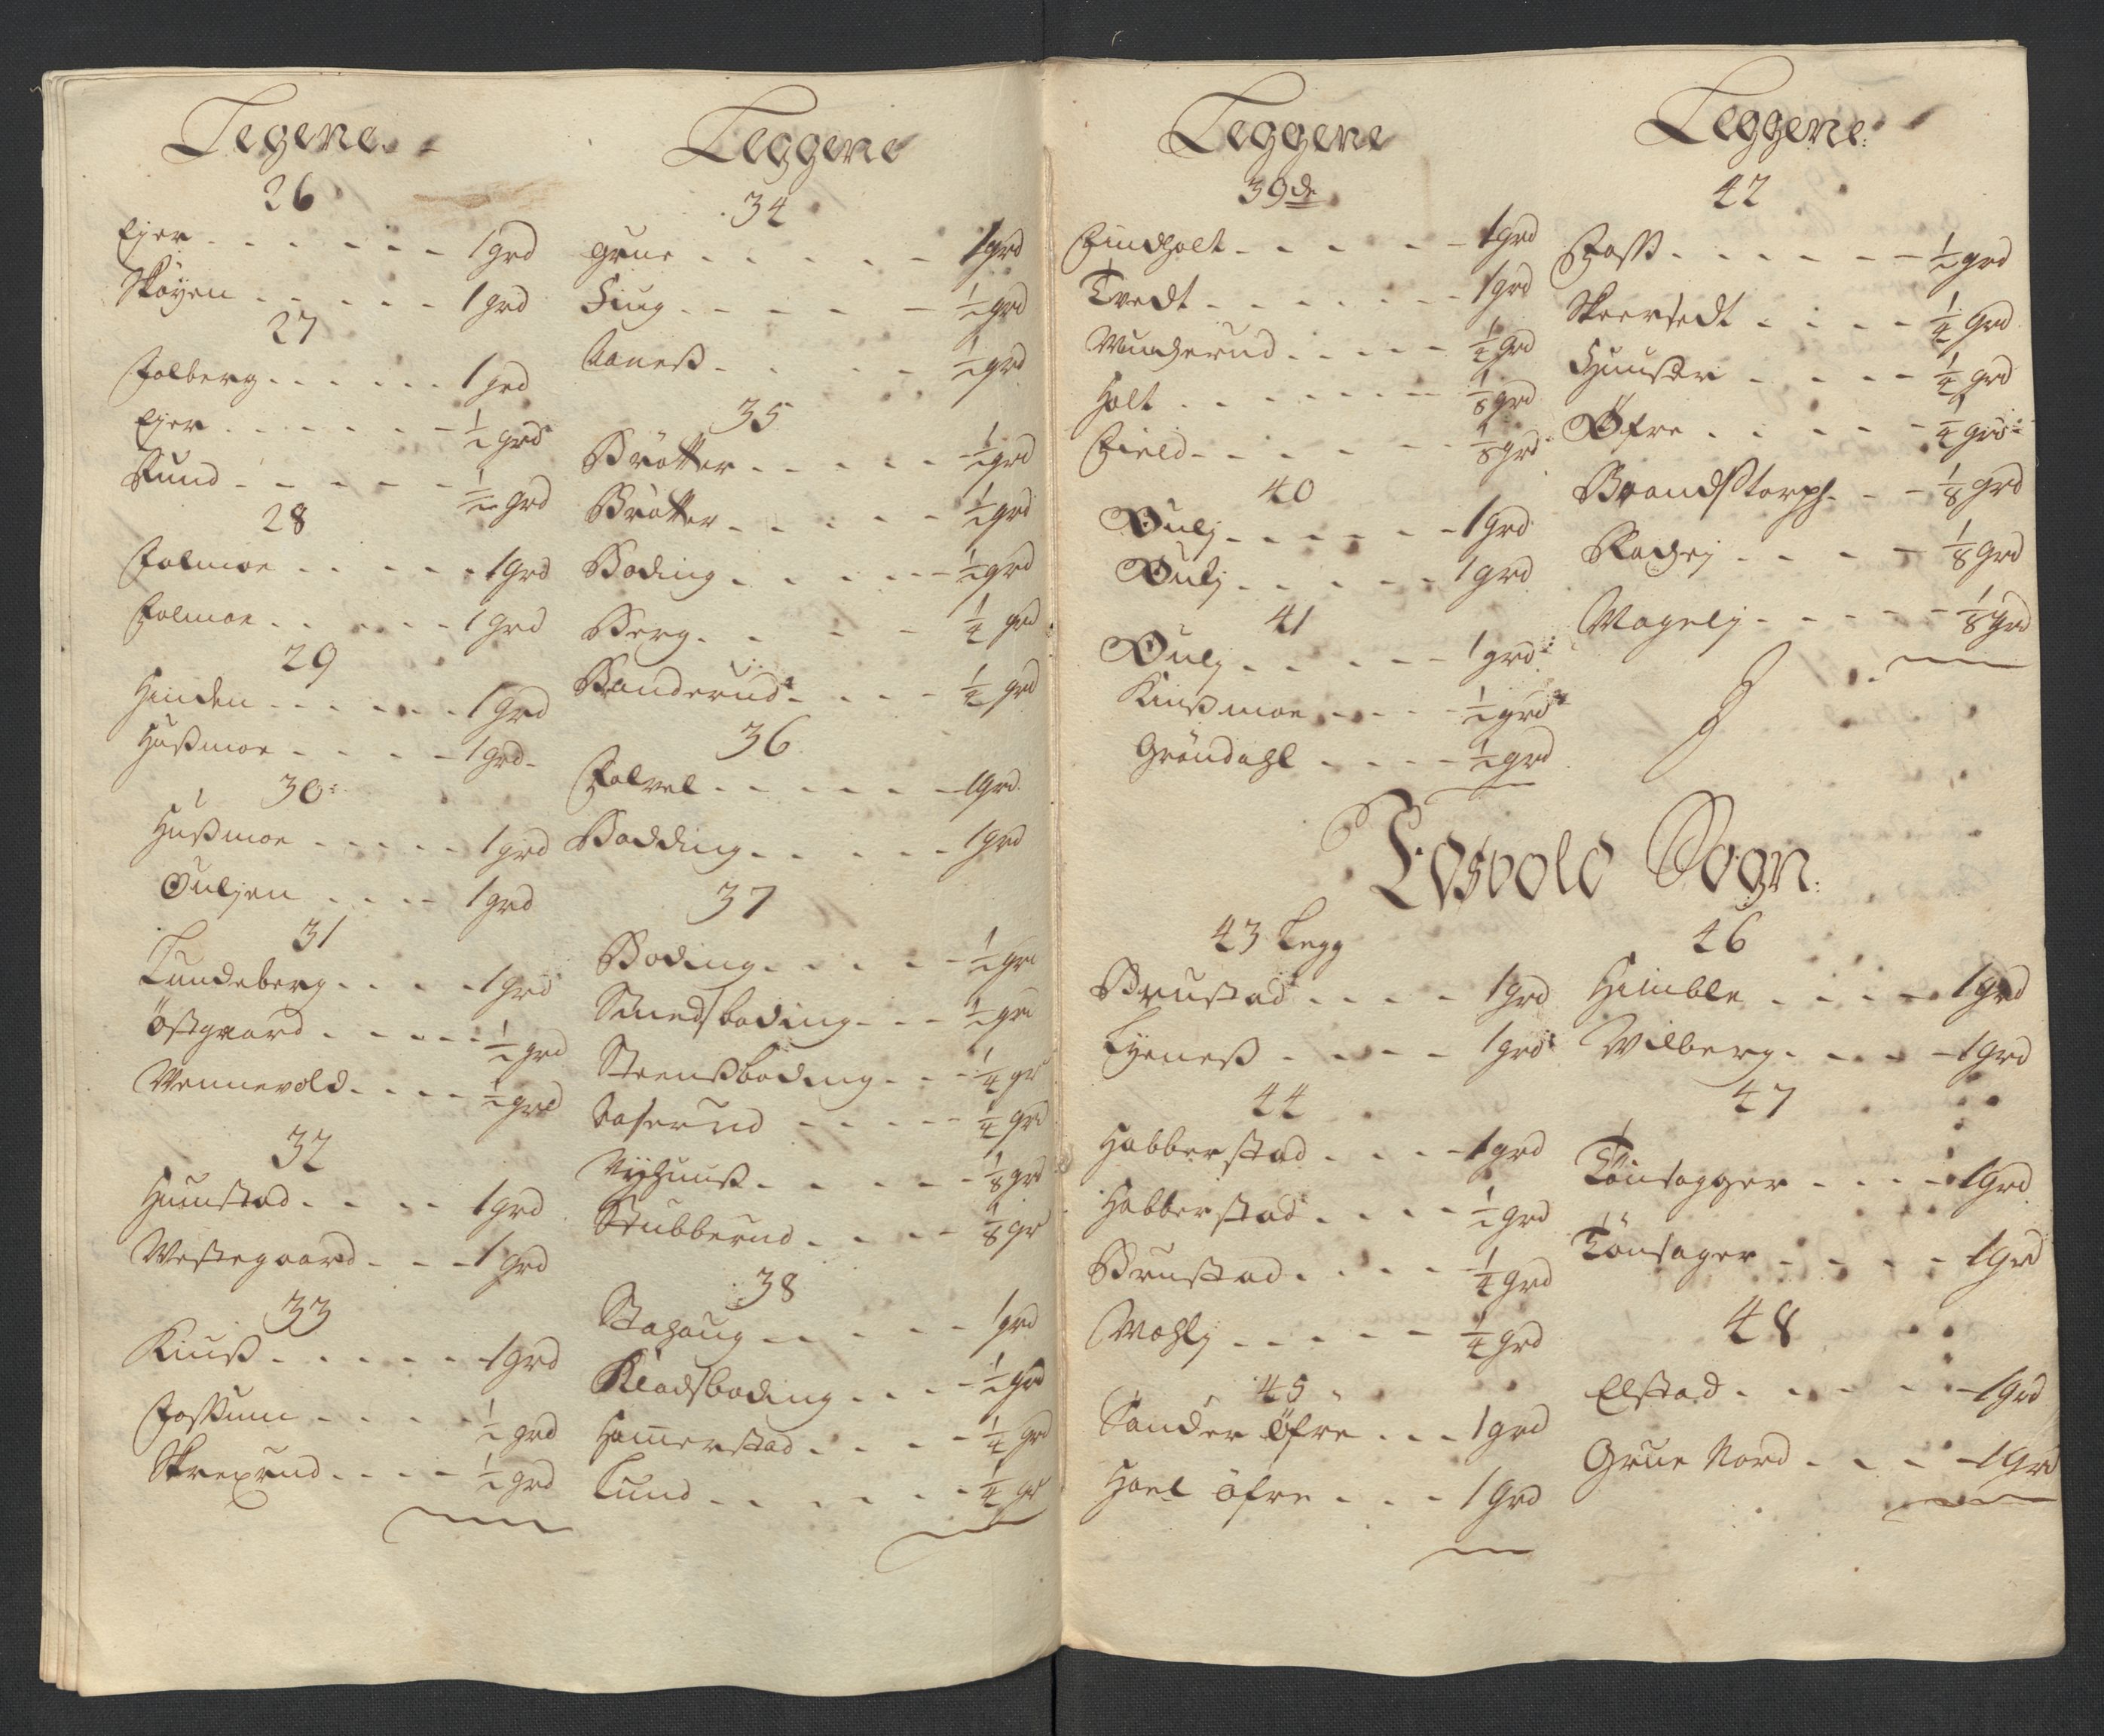 Legene
26
Ejer - - - - - - 1 grd
Skøyen - - - - - 1 grd
27
Jølberg - - - - - 1 grd
Ejer - - - - - - ½ grd
Rund - - - - - ½ grd
28
Folmoe - - - - - 1 grd
Folmoe - - - - - 1 grd
29
Hinden - - - - - 1 grd
Hußmoe - - - - 1 grd
30
Hußmoe - - - - - 1 grd
Duljen - - - - 1 grd
31
Lundeberg - - - - 1 grd
Östgaard - - - - - ½ grd
Wennevold - - - - ½ grd
32
Huunstad - - - - 1 grd
Westegaard - - - 1 grd
33
Kiuß - - - - - 1 grd
Joßum - - - - ½ grd
Skreperud - - - - ½ grd
Leggene
34
grue - - - - - 1 grd
Fiug - - - - - ½ grd
Aaneß - - - - - ½ grd
35
Brötter - - - - - ½ grd
Brötter - - - - - ½ grd
Boding - - - - - ½ grd
Berg - - - - ¼ grd
Banderud - - - - ¼ grd
36
Folvel - - - - - 1 grd
Bodding - - - - - 1 grd
37
Boding - - - - - ½ grd
Smedsboding - - - ½ grd
Steenßboding - - - ¼ gr
Aaserud - - - - - ¼ grd
Nyhuuß - - - - - ⅛ grd
Stubberud - - - - ⅛ gr
38
Stahaug - - - - - 1 grd
Kladsboding - - - - ½ grd
Hamerstad - - - - ¼ grd
Lund - - - - - - ¼ gr
Leggene
39de
Findholt - - - - - 1 grd
Tvedt - - - - - - - 1 grd
Muncherud - - - - - ¼ grd
Holt - - - - - - - ⅛ grd
Field - - - - - - ⅛ grd
40
Dulj - - - - - - 1 grd
Dulj - - - - - 1 grd
41
Dulj - - - - - 1 grd
Kiußmoe - - - - ½ grd
Gröndahl - - - - ½ grd
Leggene
42
Foss - - - - - - ½ grd
Skersedt - - - - ¼ grd
Huuser - - - - ¼ grd
Øfre - - - - - ¼ grd
Brandstorph - - - ⅛ grd
Rachej - - - - ⅛ grd
Wognlj - - - - - ⅛ grd
Edsvold Sogn
43 Legg
Brustad - - - - 1 grd
Lyeneß - - - - 1 grd
44
Habberstad - - - - 1 grd
Habberstad - - - - ½ grd
Brustad - - - - ¼ grd
Mohlj - - - - - ¼ grd
45
Sander Öfre - - - 1 grd
Hoel öfre - - - 1 grd
46
Himble - - - - 1 grd
Wilberg - - - - 1 grd
47
Tönsagger - - - - 1 grd
Tönsager - - - - 1 grd
48
Elstad - - - - - 1 grd
Grue Nord - - - - 1 grd